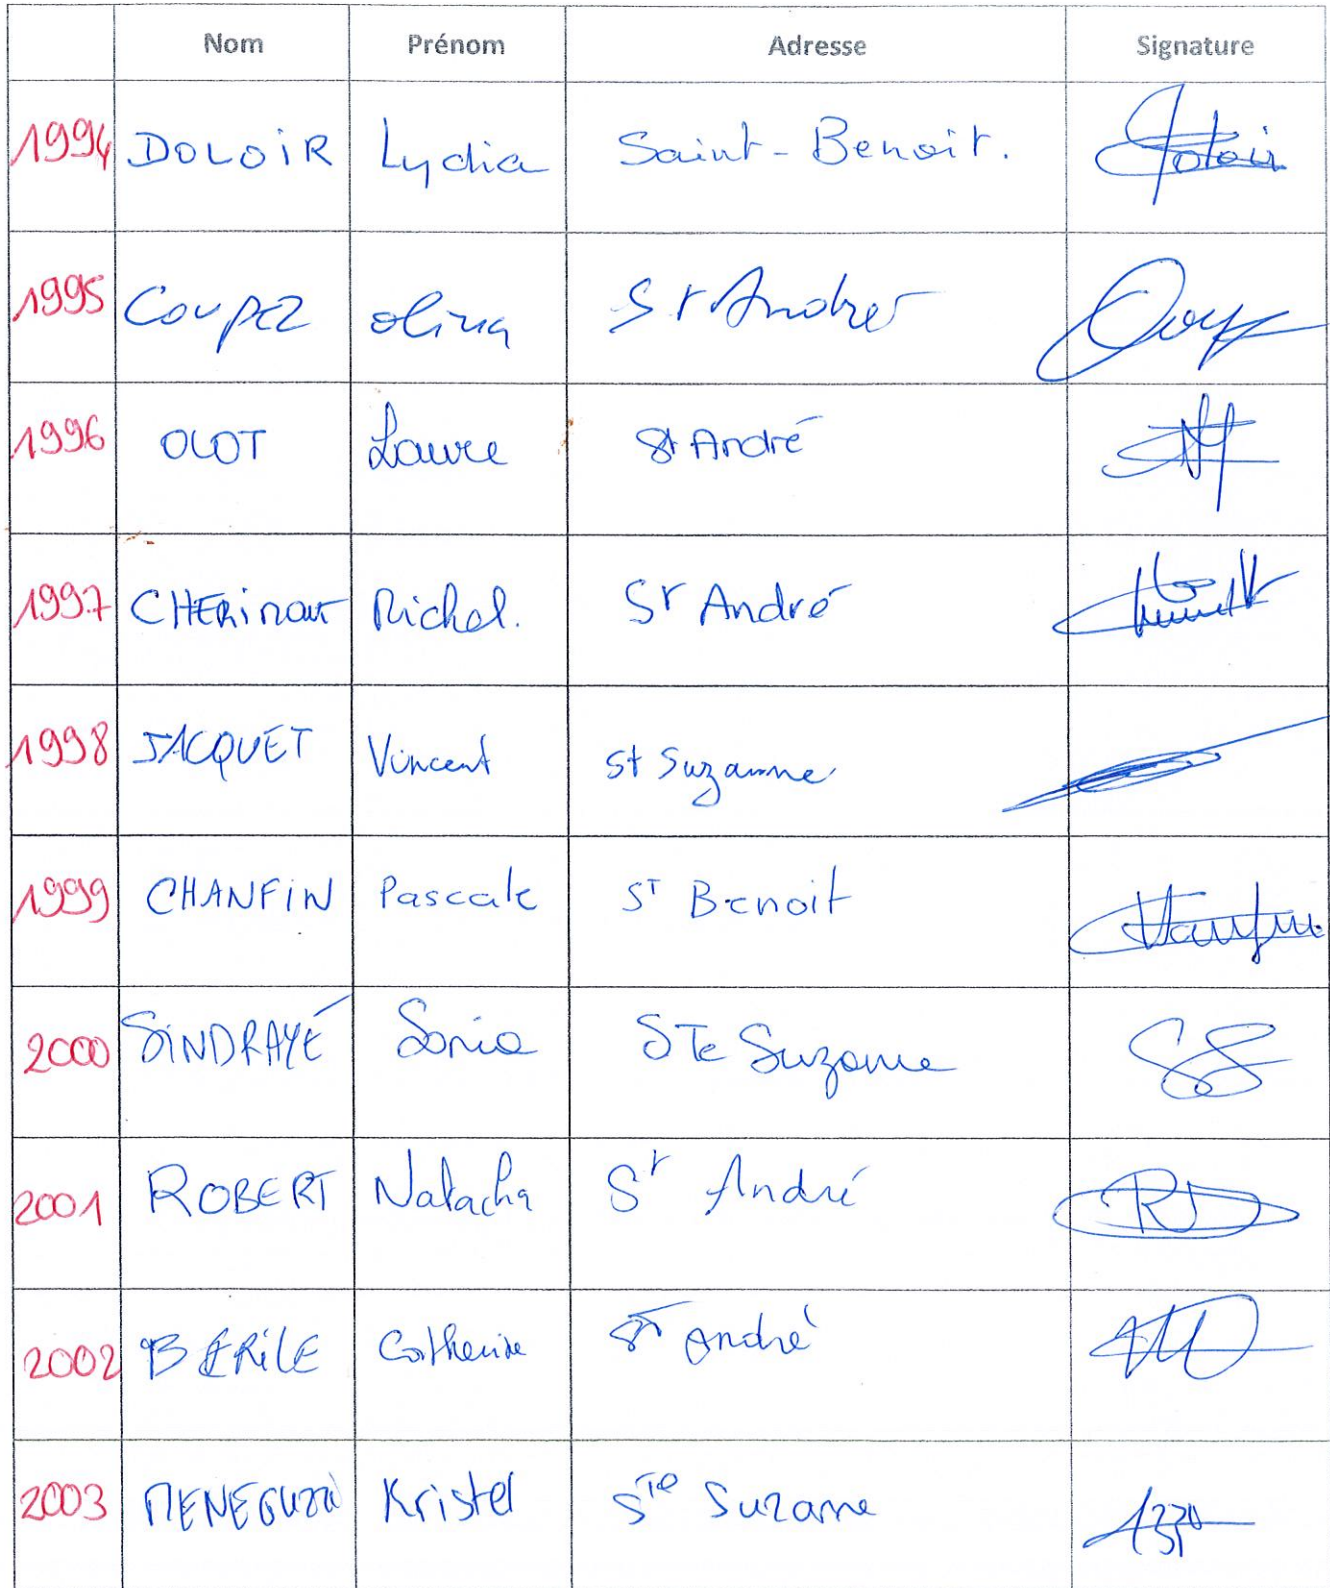 Nom Prénom Adresse Signature
1994 DOLOIR Lydia Saint-Benoit.
1995 Coupez olivia St André
1996 OLOT Laure St André
1997 CHERimont Michel. St André
1998 JACQUET Vincent St Suzanne
1999 CHANFIN Pascale St Benoit
2000 SINDRAYÉ Sonia Ste Suzanne
2001 ROBERT Natacha St André
2002 BERILE Catherine St André
2003 Kristel Ste Suzanne